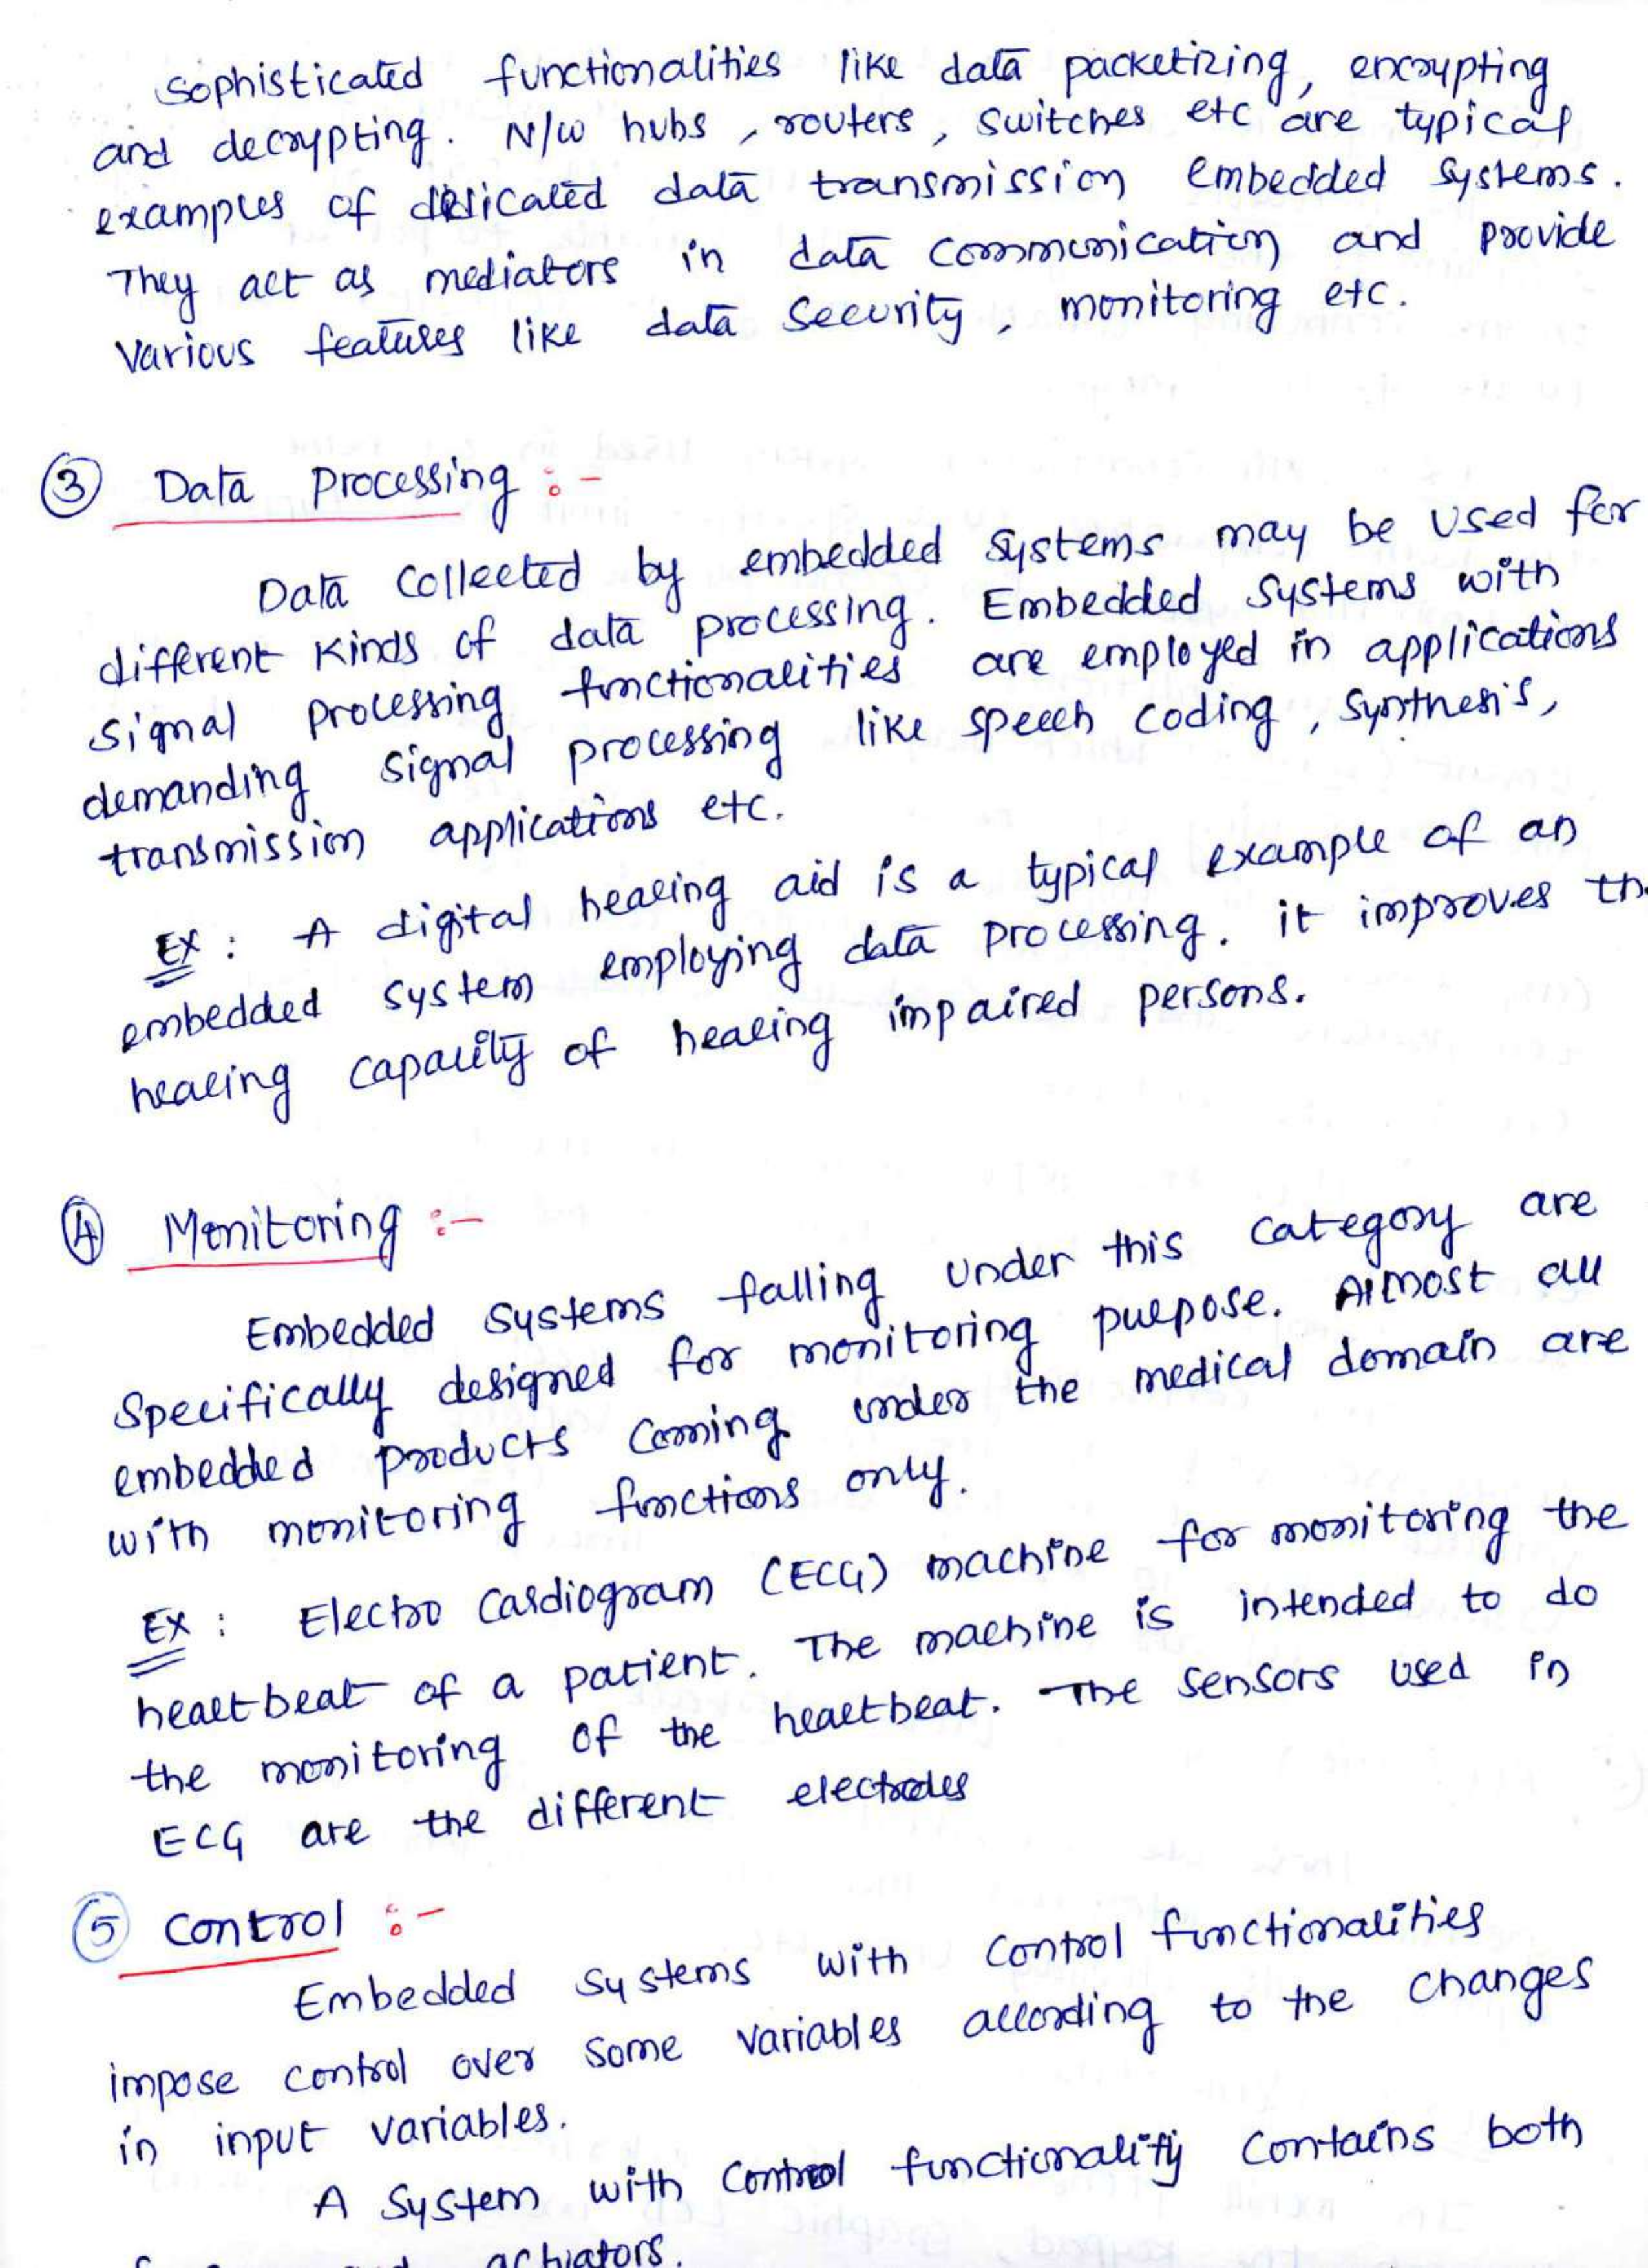 sophisticated functionalities like data packetizing, encrypting
and decrypting. N/W hubs, routers, switches etc are typical
examples of dedicated data transmission embedded systems.
They act as mediators in data communication and provide
various features like data security, monitoring etc.
③ Data Processing :-
Data collected by embedded systems may be used for
different kinds of data processing. Embedded systems with
signal processing functionalities are employed in applications
demanding signal processing like speech coding, synthesis,
transmission applications etc.
Ex : A digital hearing aid is a typical example of an
embedded system employing data processing. it improves th
hearing capacity of hearing impaired persons.
④ Monitoring :-
Embedded systems falling under this category are
specifically designed for monitoring purpose. Almost all
embedded products coming under the medical domain are
with monitoring functions only.
Ex : Electro Cardiogram (ECG) machine for monitoring the
heartbeat of a patient. The machine is intended to do
the monitoring of the heartbeat. The sensors used in
ECG are the different electrodes
⑤ Control :-
Embedded systems with control functionalities
impose control over some variables according to the changes
in input variables.
A system with control functionality contains both
actuators.